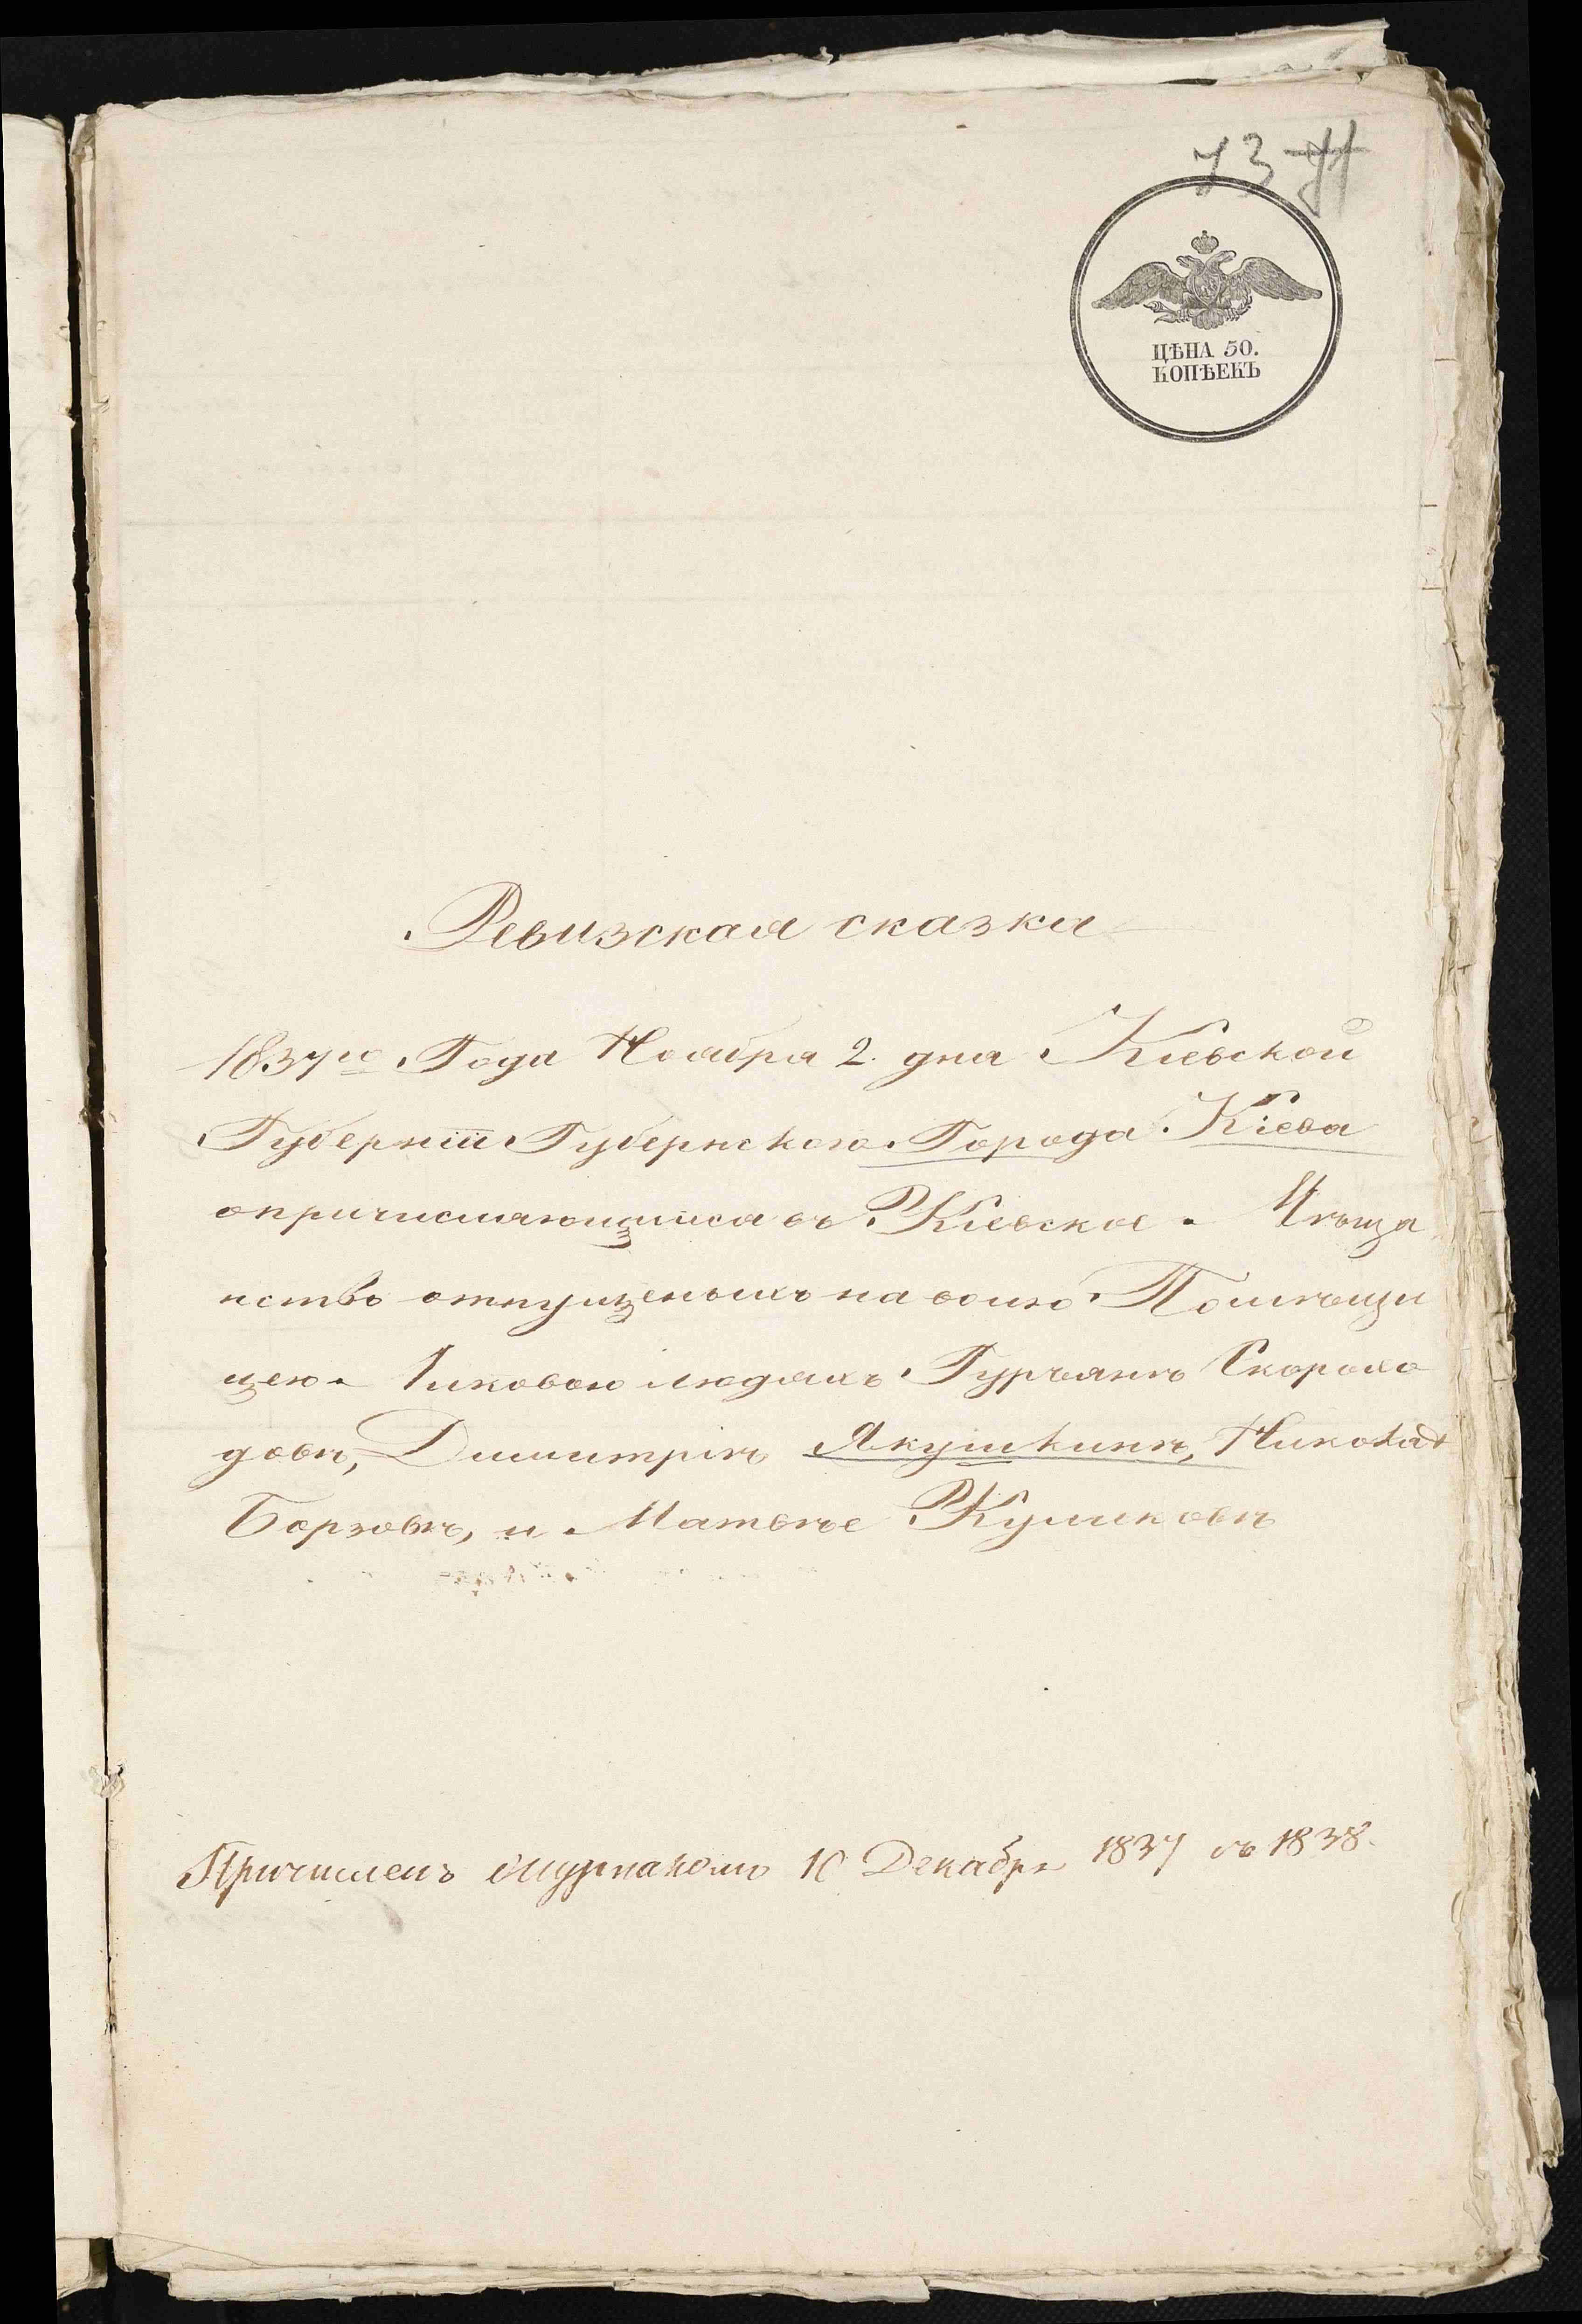 73
ЦѢНА 50.
КОПѢЕКЪ
Ревизская сказка
1837го Года Ноября 2. дня Кіевской
Губерніи Губернского Города Кіева
опричисляющихся въ Кіевское Мѣща
нство отпущеныхъ на волю Помѣщи
цею людяхъ Гурьянѣ Скорохо
довѣ, Димитріѣ Якушкинѣ, Николаѣ
Борзовѣ, и Матвѣе Куликовѣ
Причисленъ 10 Декабря 1837 съ 1838.